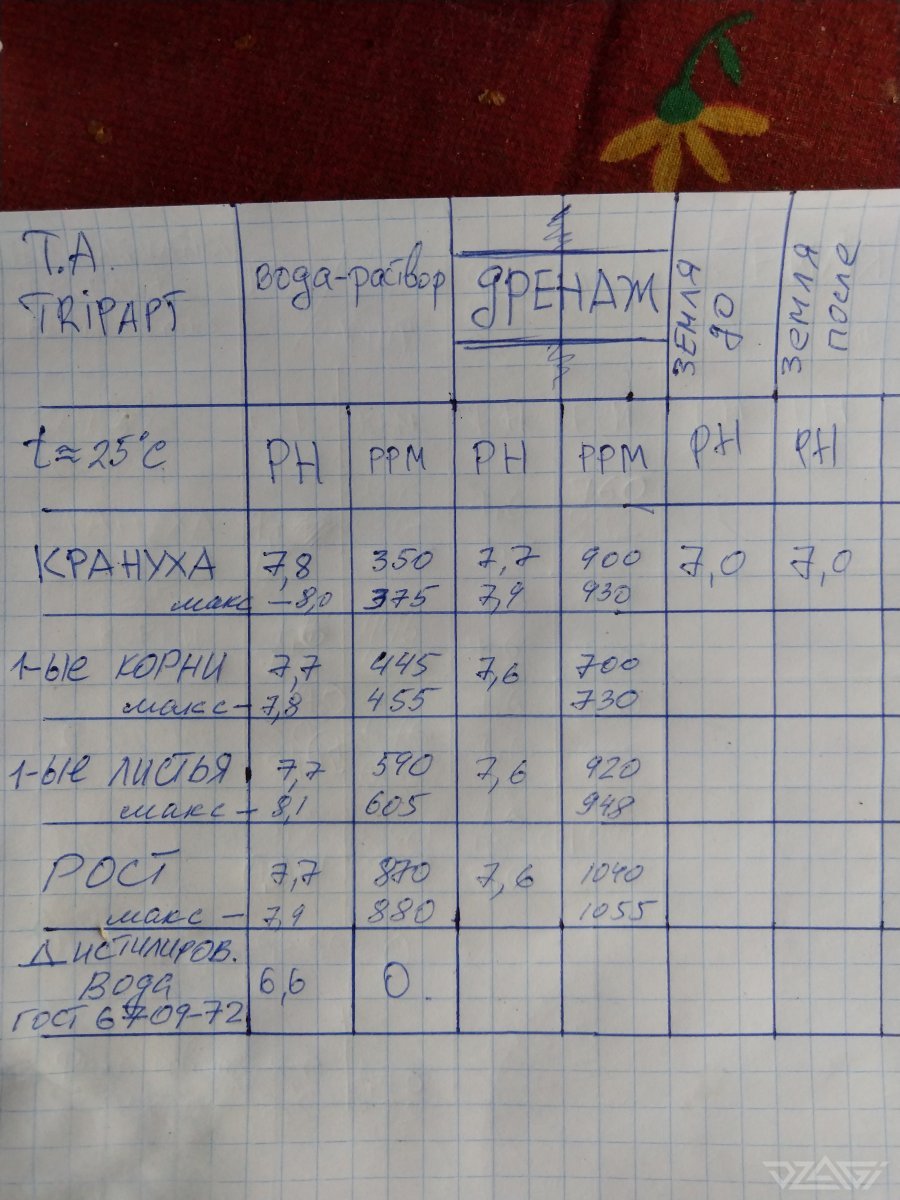 Т.А.
TRIPAPT
вода-раствор
ДРЕНАЖ
ЗЕМЛЯ ДО
ЗЕМЛЯ ПОСЛЕ
t≈25°C PH PPM PH PPM PH PH
КРАНУХА 7,8 350 7,7 900 7,0 7,0
макс – 8,0 375 7,9 930
1-ые КОРНИ 7,7 445 7,6 700
макс – 7,8 455 730
1-ые ЛИСТЬЯ 7,7 590 7,6 920
макс – 8,1 605 948
РОСТ 7,7 870 7,6 1040
макс – 7,9 880 1055
ДИСТИЛИРОВ.
Вода 6,6 0
ГОСТ 6709-72
DZAGI